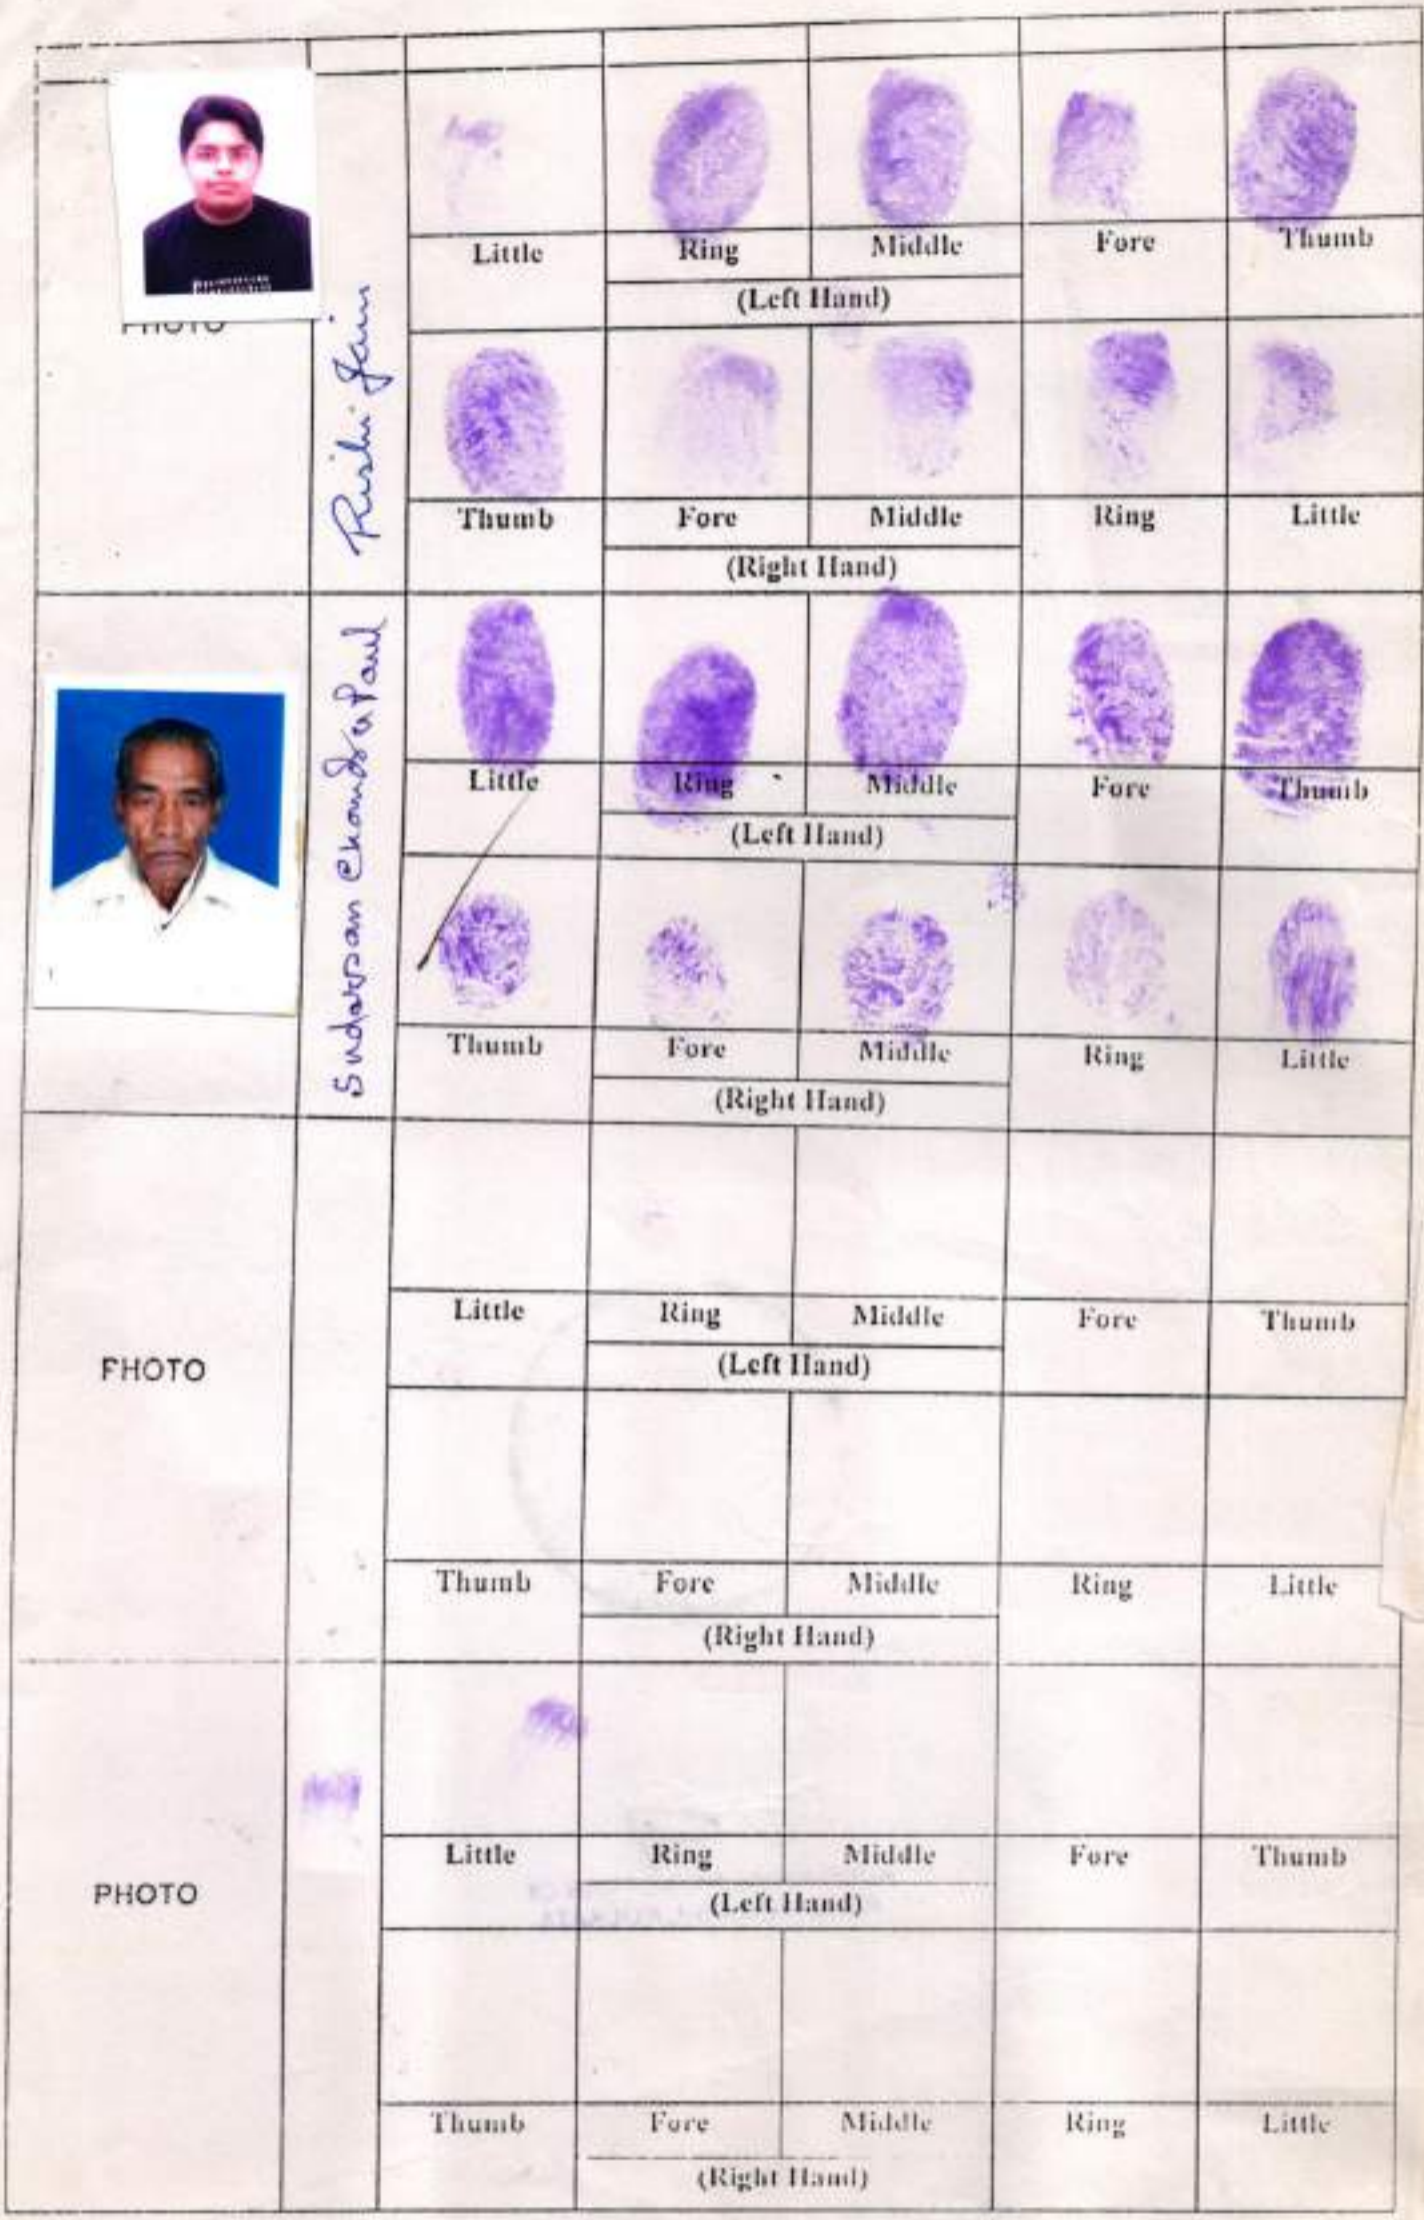 PHOTO
Rishi Jain
Little Ring Middle Fore Thumb
(Left Hand)
Thumb Fore Middle Ring Little
(Right Hand)
Sudarsan Chandra Paul
Little Ring Middle Fore Thumb
(Left Hand)
Thumb Fore Middle Ring Little
(Right Hand)
PHOTO
Little Ring Middle Fore Thumb
(Left Hand)
Thumb Fore Middle Ring Little
(Right Hand)
PHOTO
Little Ring Middle Fore Thumb
(Left Hand)
Thumb Fore Middle Ring Little
(Right Hand)